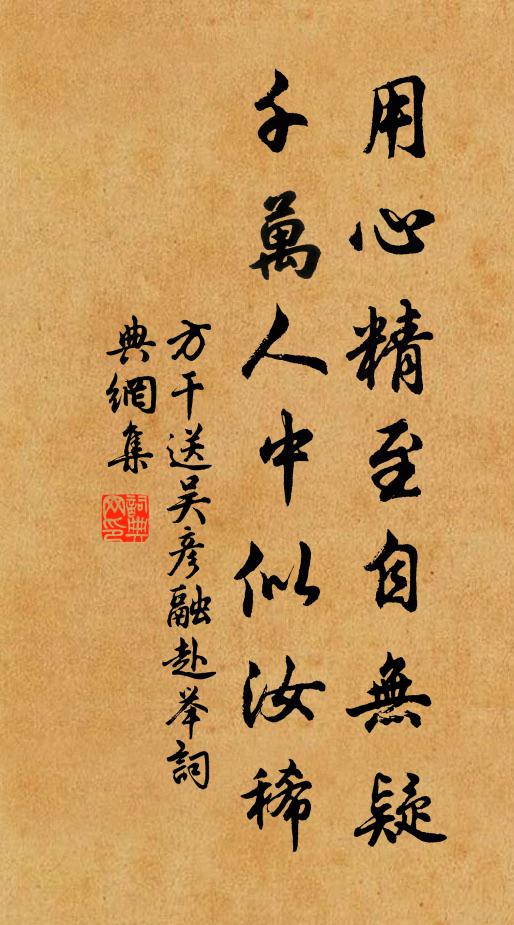 用心精至自無疑
千萬人中似汝稀
方干送吴彦融赴举詞
典網集
詞典網印